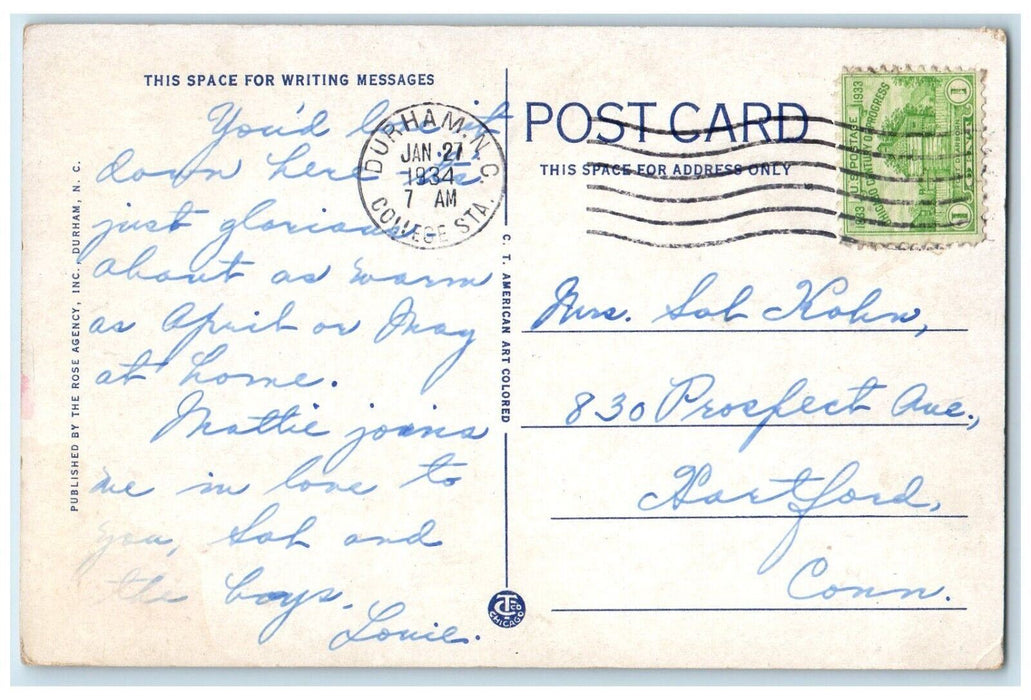 THIS SPACE FOR WRITING MESSAGES
You'd love it
down here. It's
just glorious -
about as warm
as April or May
at home.
Mattie joins
me in love to
you, Sol and
the boys.
Louie.
PUBLISHED BY THE ROSE AGENCY, INC., DURHAM, N. C.
C. T. AMERICAN ART COLORED
CT CO
CHICAGO
DURHAM, N.C.
JAN 27
1934
7 AM
COLLEGE STA.
POST CARD
THIS SPACE FOR ADDRESS ONLY
1933 U.S. POSTAGE 1933
A CENTURY OF PROGRESS
1 1
Mrs. Sol Kohn,
830 Prospect Ave.,
Hartford,
Conn.